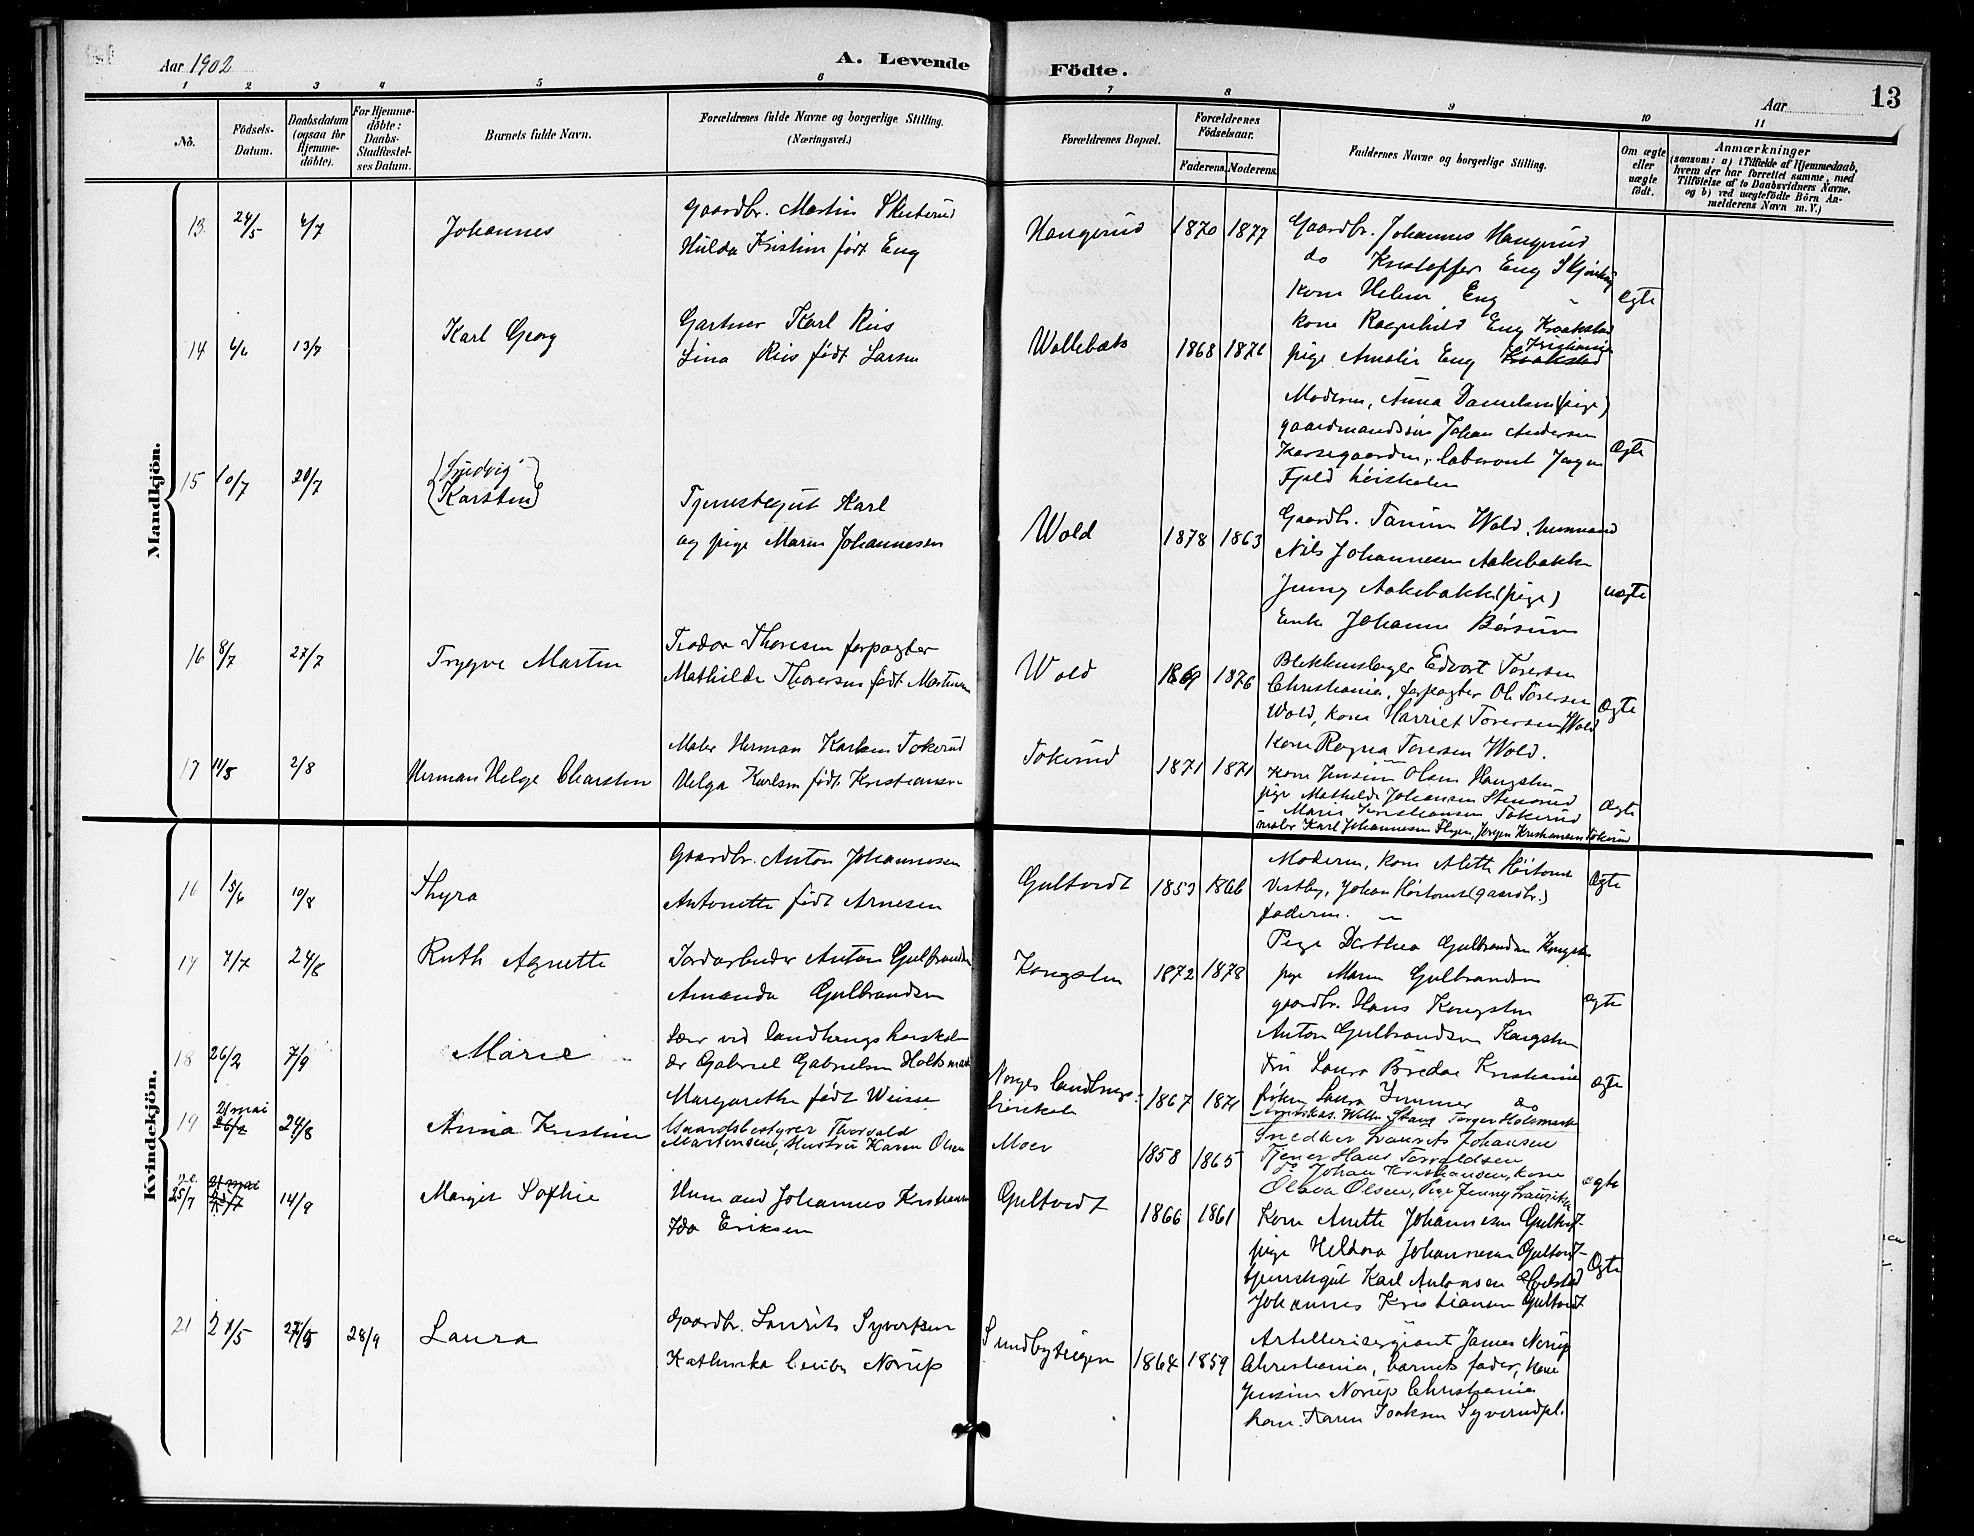 Aar 1902
A. Levende Födte.
Aar
13
1 2 3 4 5 6 7 8 9 10 11
No.
Födsels-Datum.
Daabsdatum (ogsaa for Hjemmedöbte).
For Hjemmedöbte: Daabs-Stadfæstelses Datum.
Barnets fulde Navn.
Forældrenes fulde Navne og borgerlige Stilling. (Næringsvei.)
Forældrenes Bopæl.
Forældrenes Födselsaar.
Faderens. Moderens.
Faddernes Navne og borgerlige Stilling.
Om ægte eller uægte født.
Anmærkninger
(saasom: a) i Tilfælde af Hjemmedaab, hvem der har forrettet samme, med Tilföielse af to Daabsvidners Navne, og b) ved uægtefödte Börn Anmelderens Navn m. V.)
Mandkjön.
13. 24/5 6/7 Johannes
Gaardbr. Martin
Hulda Kristine født Eng
Haugerud 1870 1877
Gaardbr. Johannes Haugerud
do Kristoffer Eng
Kone Helene Eng
Kone Ragnhild Eng Kraakstad
pige Amalie Eng Kristiania
ægte
14 6/6 13/7 Karl Georg
Gartner Karl Riis
Lina Riis født Larsen
Wollebæk 1868 1876
Moderen, Anna Danielsen (pige)
gaardmandssøn Johan Andersen
Korsegaarden, laborant
Fjeld høiskolen
ægte
15 10/7 20/7 Ludvig Karsten
Tjenestegut Karl
og pige Maren Johannesen
Wold 1878 1863
Gaardbr. Wold, husmand
Nils Johannesen Aakebakke
Jenny Aakebakke (pige)
Enke Johanne Børsum
uægte
16 8/7 27/7 Trygve Martin
Teodor Thoresen forpagter
Mathilde Thoresen født Martinsen
Wold 1869 1876
Blikkenslager Edvart Toresen
Christiania, forpagter Ole Toresen
Wold, kone Harriet Toresen Wold
Kone Ragna Toresen Wold.
ægte
17 11/5 2/8 Herman Helge Charsten
Maler Herman Karlsen Tokerud
Helga Karlsen født Kristiansen
Tokerud 1871 1871
Kone Jensine Olsen Haugsten
pige Mathilde Johansen Stenerud
- Marie Kristiansen Tokerud
maler Karl Johannesen, Jørgen Kristiansen Tokerud
ægte
Kvindekjön.
16 15/6 10/8 Thyra
Gaardbr. Anton Johannesen
Antonette født Arnesen
Gultvedt 1853 1866
Moderen, kone Alette
Vestby, Johan (gaardbr.)
faderen.
ægte
17 7/7 24/8 Ruth Agnette
Jordarbeider Anton Gulbrandsen
Amanda Gulbrandsen
Kongsten 1872 1878
Pige Dorthea Gulbrandsen Kongsten
pige Maren Gulbrandsen
gaardbr. Hans Kongsten
Anton Gulbrandsen Kongsten
ægte
18 26/2 7/9 Marie
Lærer ved landbrugshøiskolen
dr Gabriel Gabrielsen Holtsmark
Margarethe født Weisse
Norges landbrugshøiskole 1867 1871
Fru Laura Bredal Kristiania
frøken Laura do
Torger Holtsmark
ægte
19 21 mai 24/8 Anna Kristine
Gaardsbestyrer Thorvald
Martinsen, Hustru Karen Olsen
Moer 1858 1865
Snedker Laurits Johansen
Tjener Hans Torvaldsen
do Johan Kristiansen, kone
Olava Olsen, Pige Jenny
ægte
20. 25/7 14/9 Margit Sofhie
Husmand Johannes Kristiansen
Ida Eriksen
Gultvedt 1866 1861
Kone Anette Johannesen Gultvedt
pige Heldora Johannesen Gultvedt
tjenestegut Karl Antonsen
Johannes Kristiansen Gultvedt
ægte
21 21/5 28/9 Laura
Gaardbr. Laurits Syvertsen
Kathinka Norup
Sundbyteigen 1864 1859
Artillerisergiant James Norup
Christiania, barnets fader, kone
Jensine Norup Christiania
kone Karen Isaksen